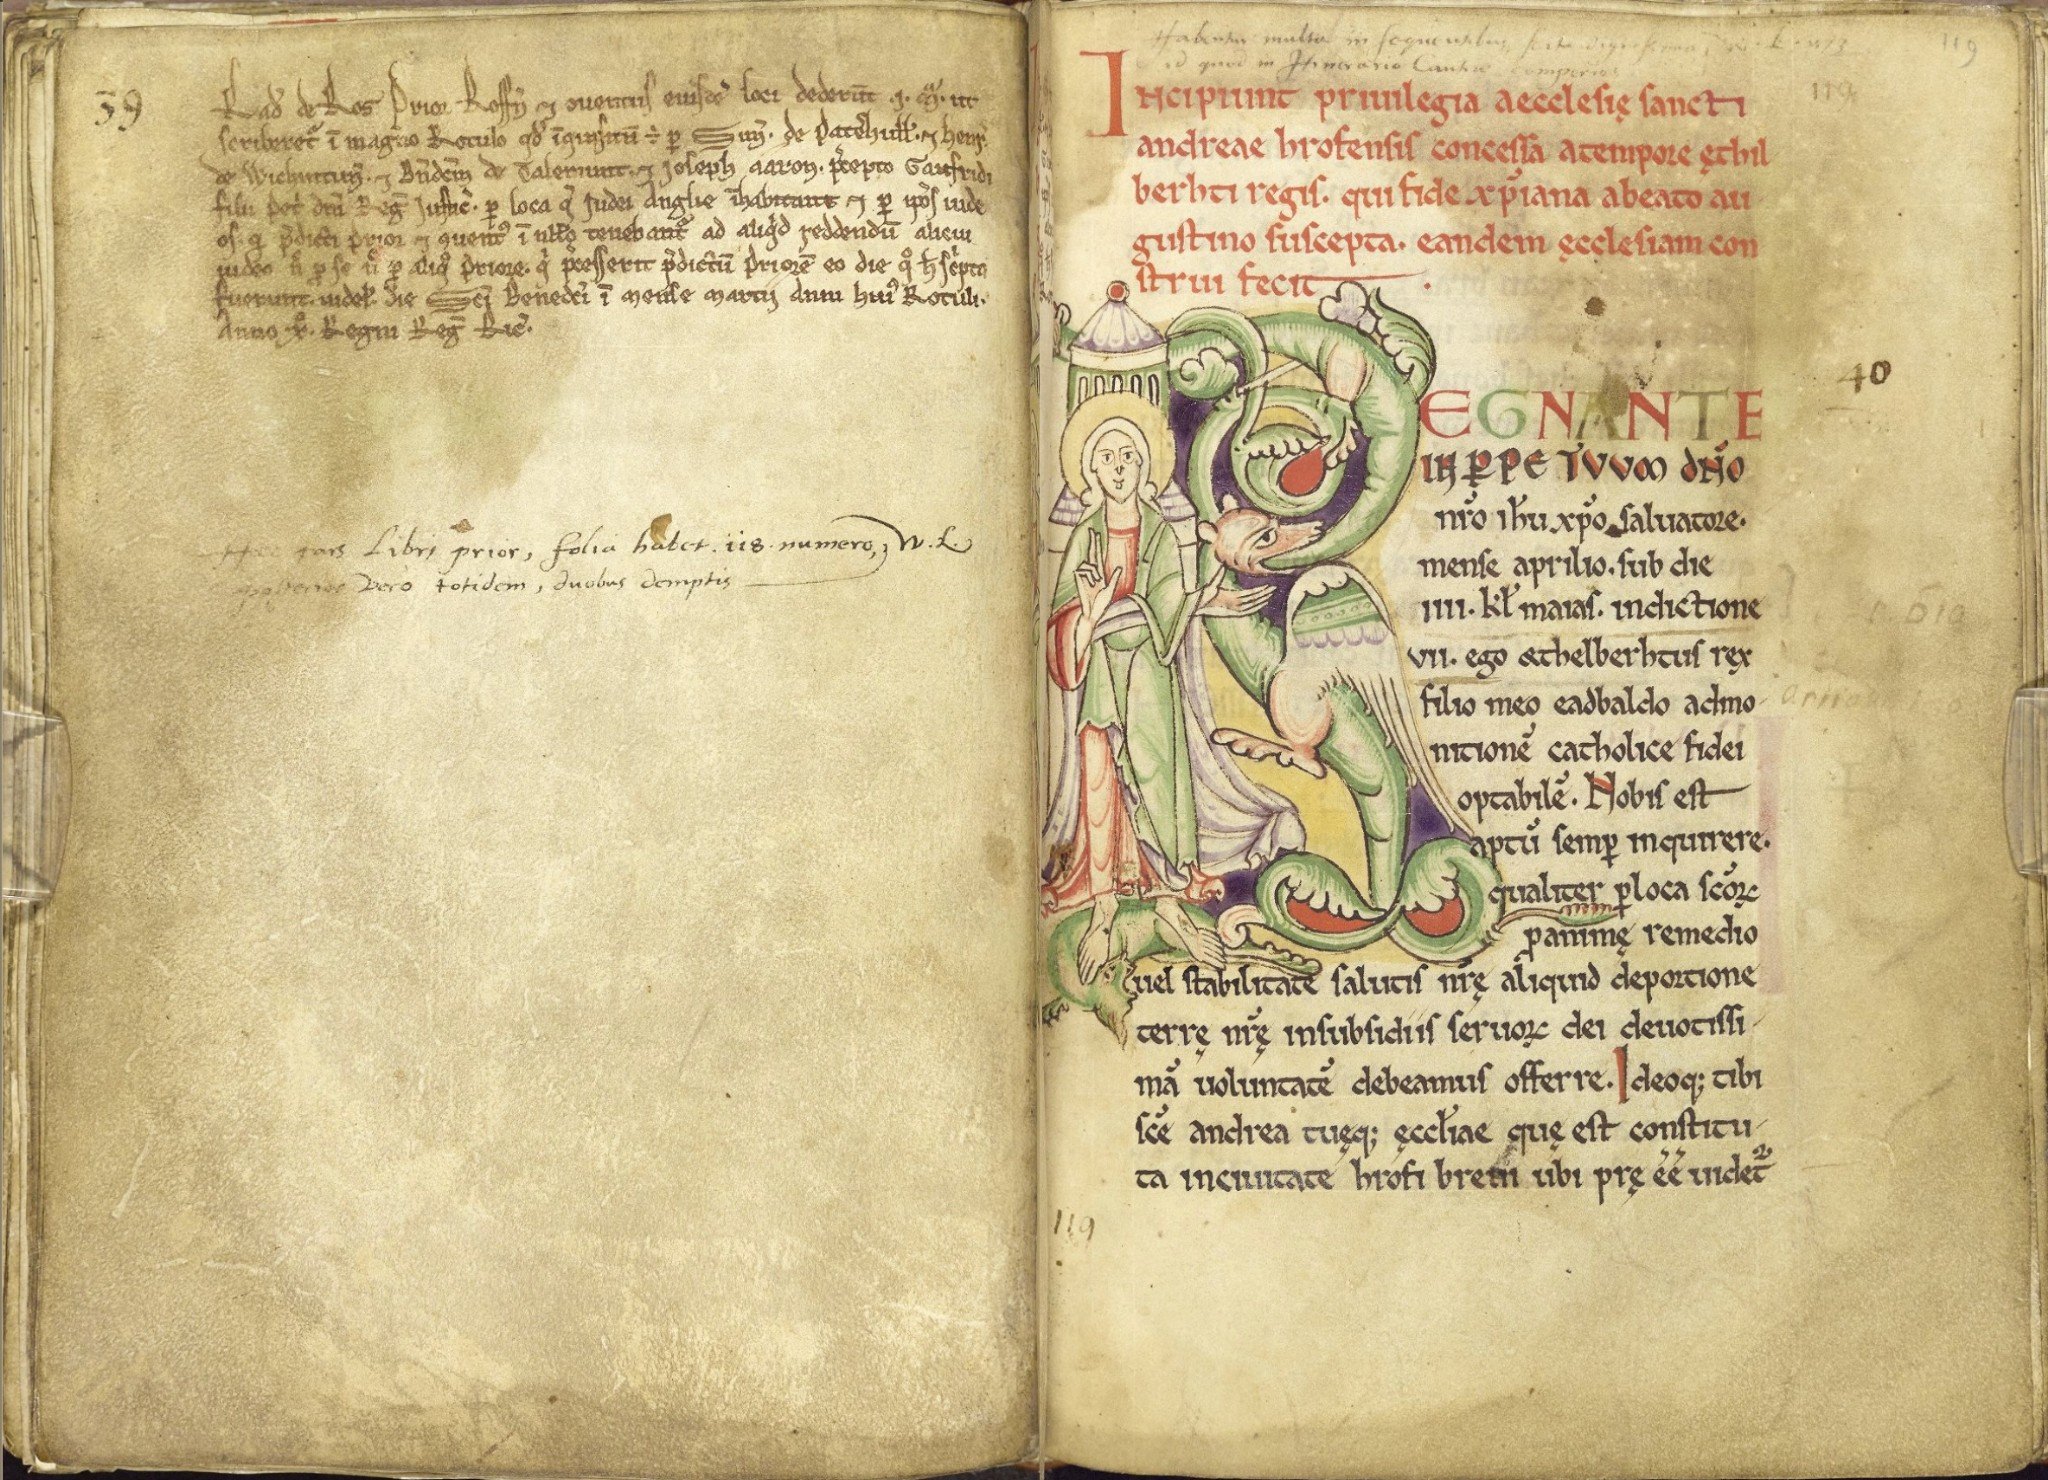 39
Rad' de Ros Prior Roffn̄ ⁊ ouentus eiusdē loci dederūt .j. m̄r. ut
scriberet᷑ ī magno Rotulo qd' īquisitū ÷ p Sim̄. de Pateshull'. ⁊ henr̄.
de Wichintun̄. ⁊ Bn̄dc̄m de Talemunt. ⁊ Joseph aaron. p̄cepto Gaufridi
filii pet' dn̄i Reḡ Justic̄. p loca q̄ Iudei Anglie īhabitant ⁊ p ip̄os iude
os. q p̄dicti prior ⁊ quent᷒ ī nullo tenebant᷑ ad aliq̄d reddendū alicui
iudeo n̄ p se n̄ p aliq̄ Priorē. q̄ p̄cesserit p̄dictū Priorē eo die q̊ h̄ sc̄pta
fuerunt. uidel'. die Sc̄i Benedc̄i ī mense martij anni hui᷒ Rotuli.
Anno .x̊. Regni Reḡ Ric̄.
Hec pars Libri prior, folia habet .118. numero, W. L.
posterior vero totidem, duobus demptis
119
Habentur multa in sequentibus W. L. 1573
id quod in Itinerario Cantiæ
119
Incipiunt priuilegia aecclesię sancti
andreae hrofensis concessa a tempore ęthil
berhti regis. qui fide xp̄iana a beato au
gustino suscepta. eandem ęcclesiam con
strui fecit.
40
REGNANTE
IN PERPETUUM DN̄O
nr̄o ih̄u xp̄o saluatore.
mense aprilio. sub die
IIII. kl̄ maias. indictione
VII. ego æthelberhtus rex
filio meo eadbaldo admo
nitionē catholice fidei
optabilē. Nobis est
aptū semp̄ inquirere.
qualiter p̱ loca sc̄oꝝ
p̱ animę remedio
uel stabilitate salutis nr̄ę aliquid de portione
terrę nr̄ę in subsidiis seruoꝝ dei deuotissi
mā uoluntatē debeamus offerre. Ideoq; tibi
sc̄e andrea tuęq; ęccl̄iae quę est constitu
ta in ciuitate hrofi breui ubi pręēē uidet᷑
119